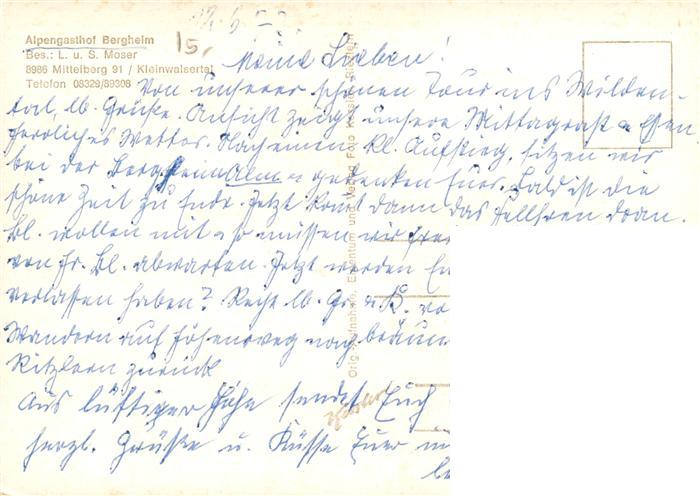 Alpengasthof Bergheim
Bes.: L. u. S. Moser
8986 Mittelberg 91 / Kleinwalsertal
Telefon 08329/89308
15,
Meine Lieben!
Von unserer schönen Tour ins Wilden-
tal, lb. Grüße. Ansicht zeigt unsere Mittagrast u. Essen
herrliches Wetter. Nach einem kl. Aufstieg, sitzen wir
bei der Bergheim Alm u. gedenken Euer. Bald ist die
schöne Zeit zu Ende. Jetzt kommt dann das dran.
Bl. wollen mit u. so müssen wir
von Fr. Bl. abwarten. Jetzt werden
verlassen haben? Recht lb. Gr. u. K.
Wandern auf Höhenweg nach
zurück
Aus luftiger Höhe sendet Euch
herzl. Grüße u. Küsse Euer
Orig. Aufnahme, Eigentum und Verlag Foto